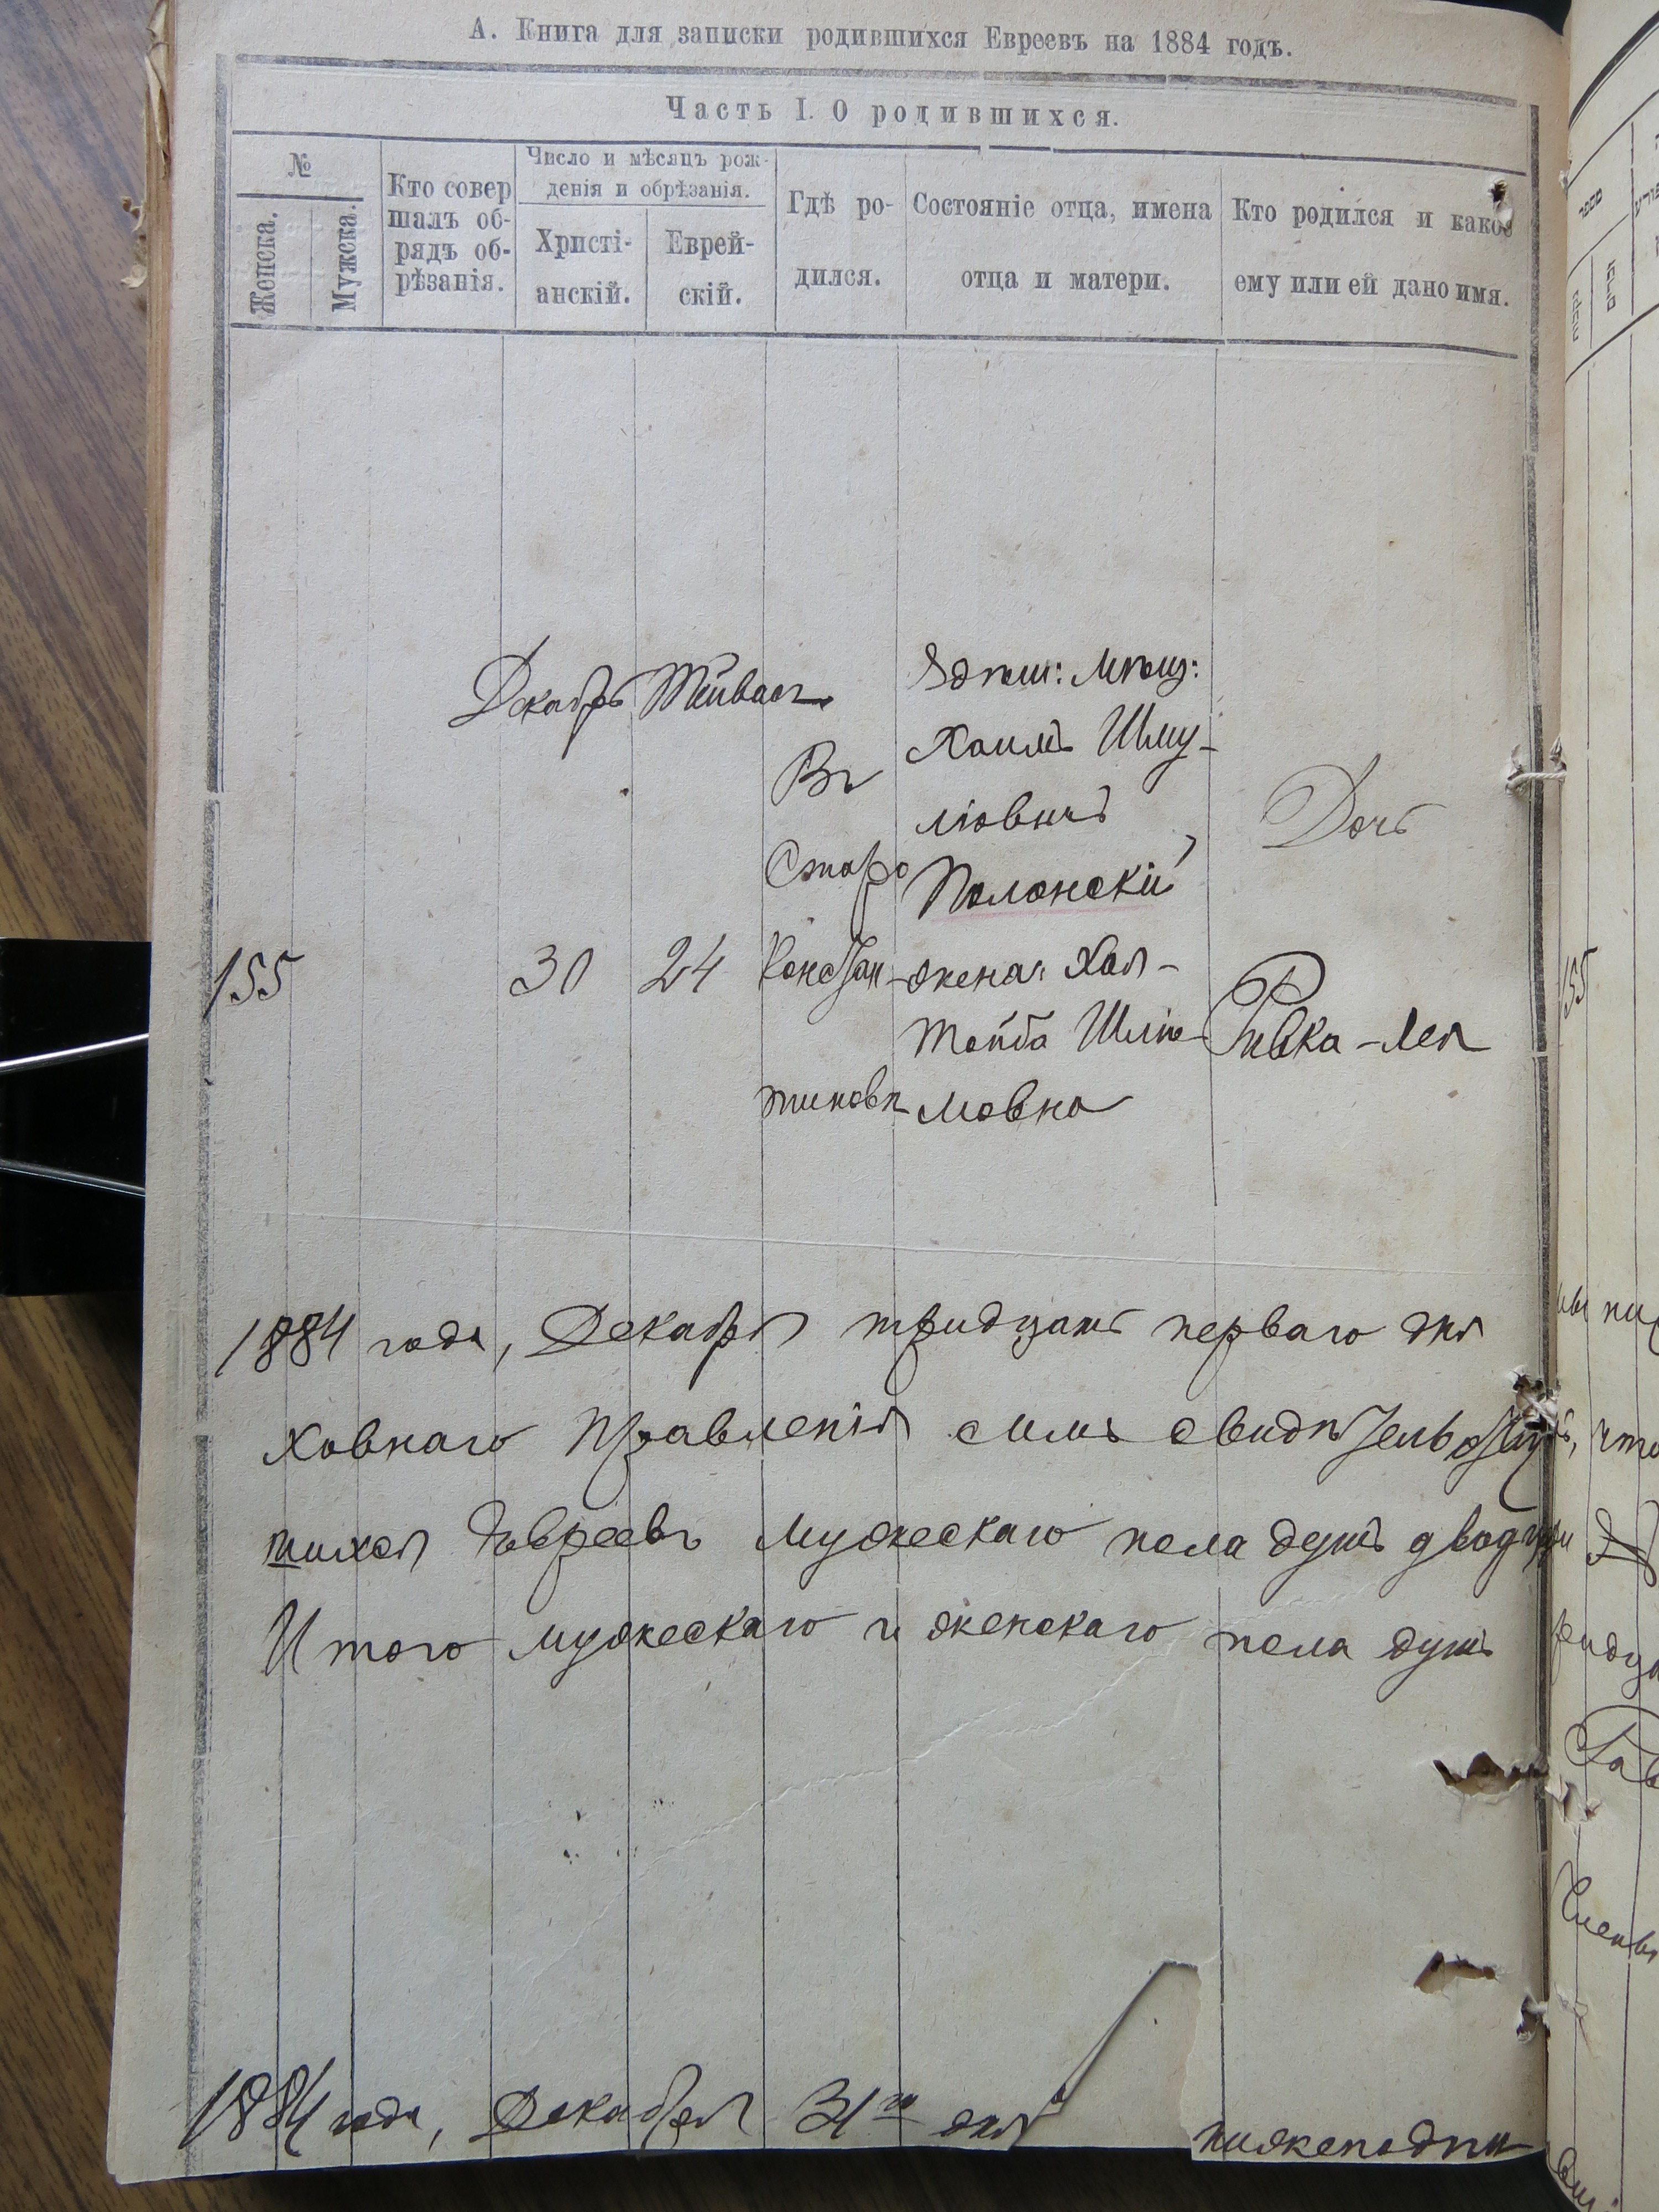 А. Книга для записки родившихся Евреевъ на 1884 годъ.
Часть I. О родившихся.
№
Женска.
Мужска.
Кто совер
шалъ об-
рядъ об-
рѣзанія.
Число и мѣсяцъ рож-
денія и обрѣзанія.
Христі-
анскій.
Еврей-
скій.
Гдѣ ро-
дился.
Состояніе отца, имена
отца и матери.
Кто родился и какое
ему или ей дано имя.
Декабрь Тейвасъ
155
30
24
Въ
Старо
Констан-
тиновѣ
Здѣш: Мѣщ:
Хаимъ Шму-
ліовичъ
Полонскій
жена Хая-
Тойба Шлііо-
мовна
Дочь
Ривка-Лея
155
1884 года, Декабря тридцать перваго дня
ховнаго Правленія симъ свидѣтельствуетъ, что
шихся Евреевъ мужескаго пола душъ двадцать
Итого мужескаго и женскаго пола душъ
1884 года, Декабря 31го дня нижеподпи